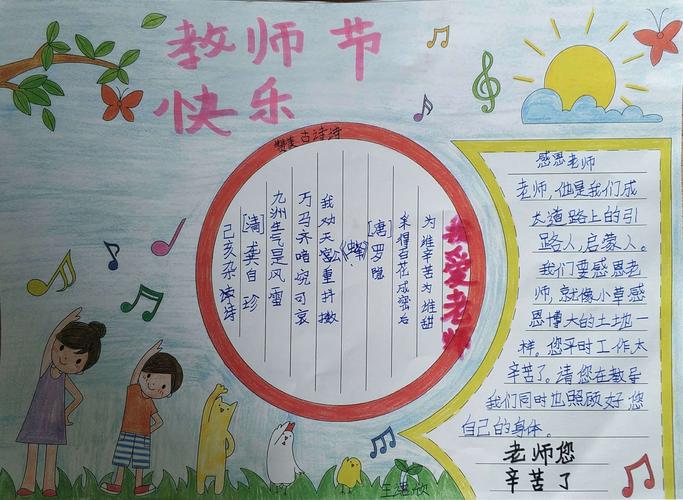 教师节
快乐
赞美古诗诗
己亥杂诗
[清]龚自珍
九洲生气是风雷
万马齐喑究可哀
我劝天公重抖擞
《蜂》
[唐]罗隐
采得百花成蜜后
为谁辛苦为谁甜
我爱老师
感恩老师
老师,他是我们成
大道路上的引
路人,启蒙人。
我们要感恩老
师,就像小草感
恩博大的土地一
样。您平时工作太
辛苦了。请您在教导
我们同时也照顾好您
自己的身体。
老师您
辛苦了